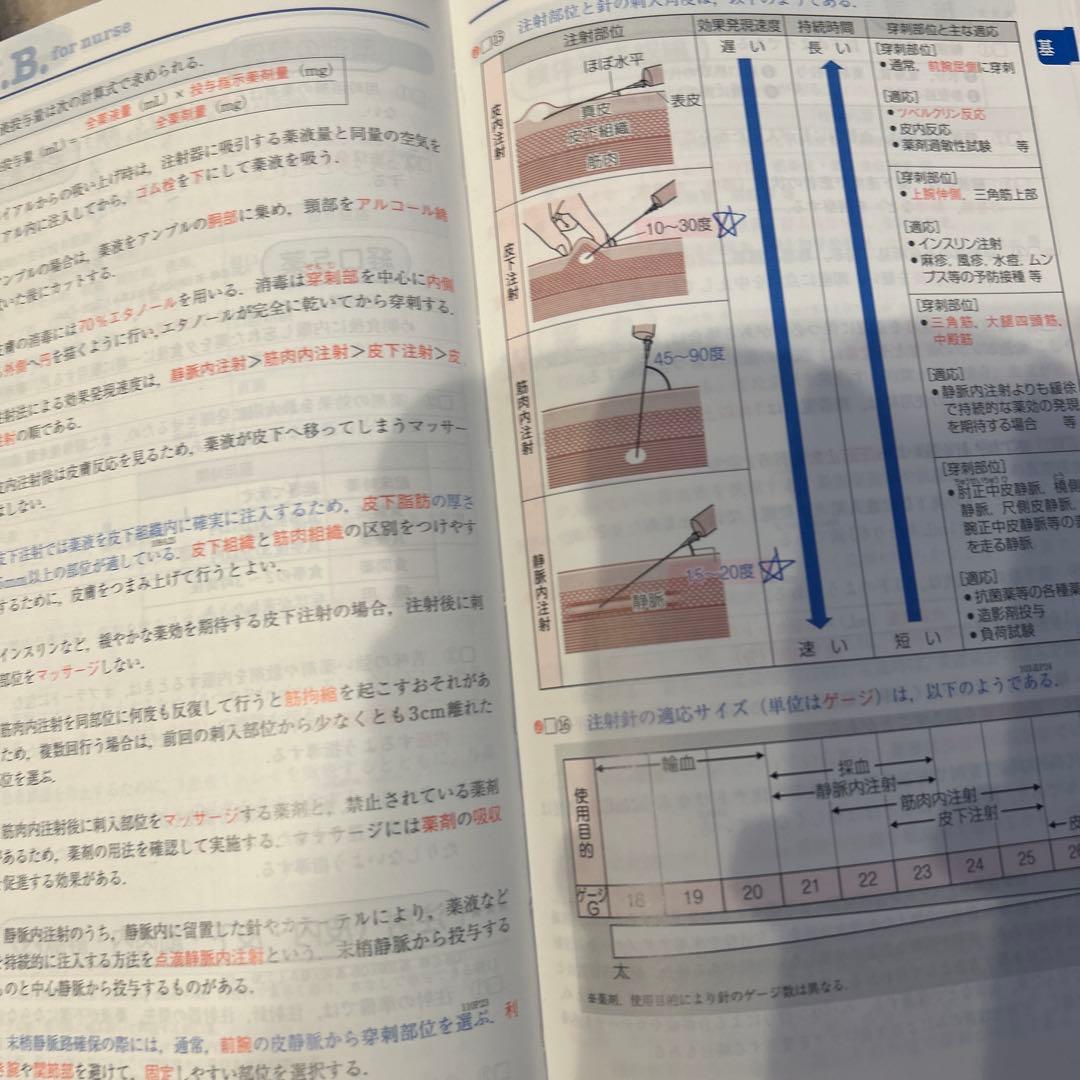 .B. for nurse
液投与量は次の計算式で求められる.
投与量（mL）= 全薬液量（mL）× 投与指示薬剤量（mg）
全薬剤量（mg）
イアルからの吸い上げ時は，注射器に吸引する薬液量と同量の空気を
アル内に注入してから，ゴム栓を下にして薬液を吸う.
ンプルの場合は，薬液をアンプルの胴部に集め，頸部をアルコール綿
いた後にカットする.
皮膚の消毒には70％エタノールを用いる．消毒は穿刺部を中心に内側
ら外側へ円を描くように行い，エタノールが完全に乾いてから穿刺する.
注射法による効果発現速度は，静脈内注射＞筋肉内注射＞皮下注射＞皮
注射の順である.
皮内注射後は皮膚反応を見るため，薬液が皮下へ移ってしまうマッサー
はしない.
皮下注射では薬液を皮下組織内に確実に注入するため，皮下脂肪の厚さ
5mm以上の部位が適している．皮下組織と筋肉組織の区別をつけやす
するために，皮膚をつまみ上げて行うとよい.
インスリンなど，緩やかな薬効を期待する皮下注射の場合，注射後に刺
部位をマッサージしない.
筋肉内注射を同部位に何度も反復して行うと筋拘縮を起こすおそれがあ
ため，複数回行う場合は，前回の刺入部位から少なくとも3cm離れた
位を選ぶ.
筋肉内注射後に刺入部位をマッサージする薬剤と，禁止されている薬剤
があるため，薬剤の用法を確認して実施する．マッサージには薬剤の吸収
を促進する効果がある.
静脈内注射のうち，静脈内に留置した針やカテーテルにより，薬液など
を持続的に注入する方法を点滴静脈内注射という．末梢静脈から投与する
ものと中心静脈から投与するものがある.
110P23
末梢静脈路確保の際には，通常，前腕の皮静脈から穿刺部位を選ぶ．利
き腕や関節部を避けて，固定しやすい部位を選択する.
□⑮ 注射部位と針の刺入角度は，以下のようである.
基
注射部位 効果発現速度 持続時間 穿刺部位と主な適応
遅い 長い
皮内注射
ほぼ水平
表皮
真皮
皮下組織
筋肉
[穿刺部位]
●通常，前腕屈側に穿刺
[適応]
●ツベルクリン反応
●皮内反応
●薬剤過敏性試験 等
皮下注射
10〜30度 ☆
[穿刺部位]
●上腕伸側，三角筋上部
[適応]
●インスリン注射
●麻疹，風疹，水痘，ムン
プス等の予防接種 等
筋肉内注射
45〜90度
[穿刺部位]
●三角筋，大腿四頭筋，
中殿筋
[適応]
●静脈内注射よりも緩徐
で持続的な薬効の発現
を期待する場合 等
静脈内注射
15〜20度 ☆
静脈
[穿刺部位]
●肘正中皮静脈，橈側
静脈，尺側皮静脈，
腕正中皮静脈等の表
を走る静脈
[適応]
●抗菌薬等の各種薬
●造影剤投与
●負荷試験
速い 短い
□⑯ 注射針の適応サイズ（単位はゲージ）は，以下のようである.
使用目的
輸血
採血
静脈内注射
筋肉内注射
皮下注射
皮
ゲージG 18 19 20 21 22 23 24 25 26
太
※薬剤，使用目的により針のゲージ数は異なる.